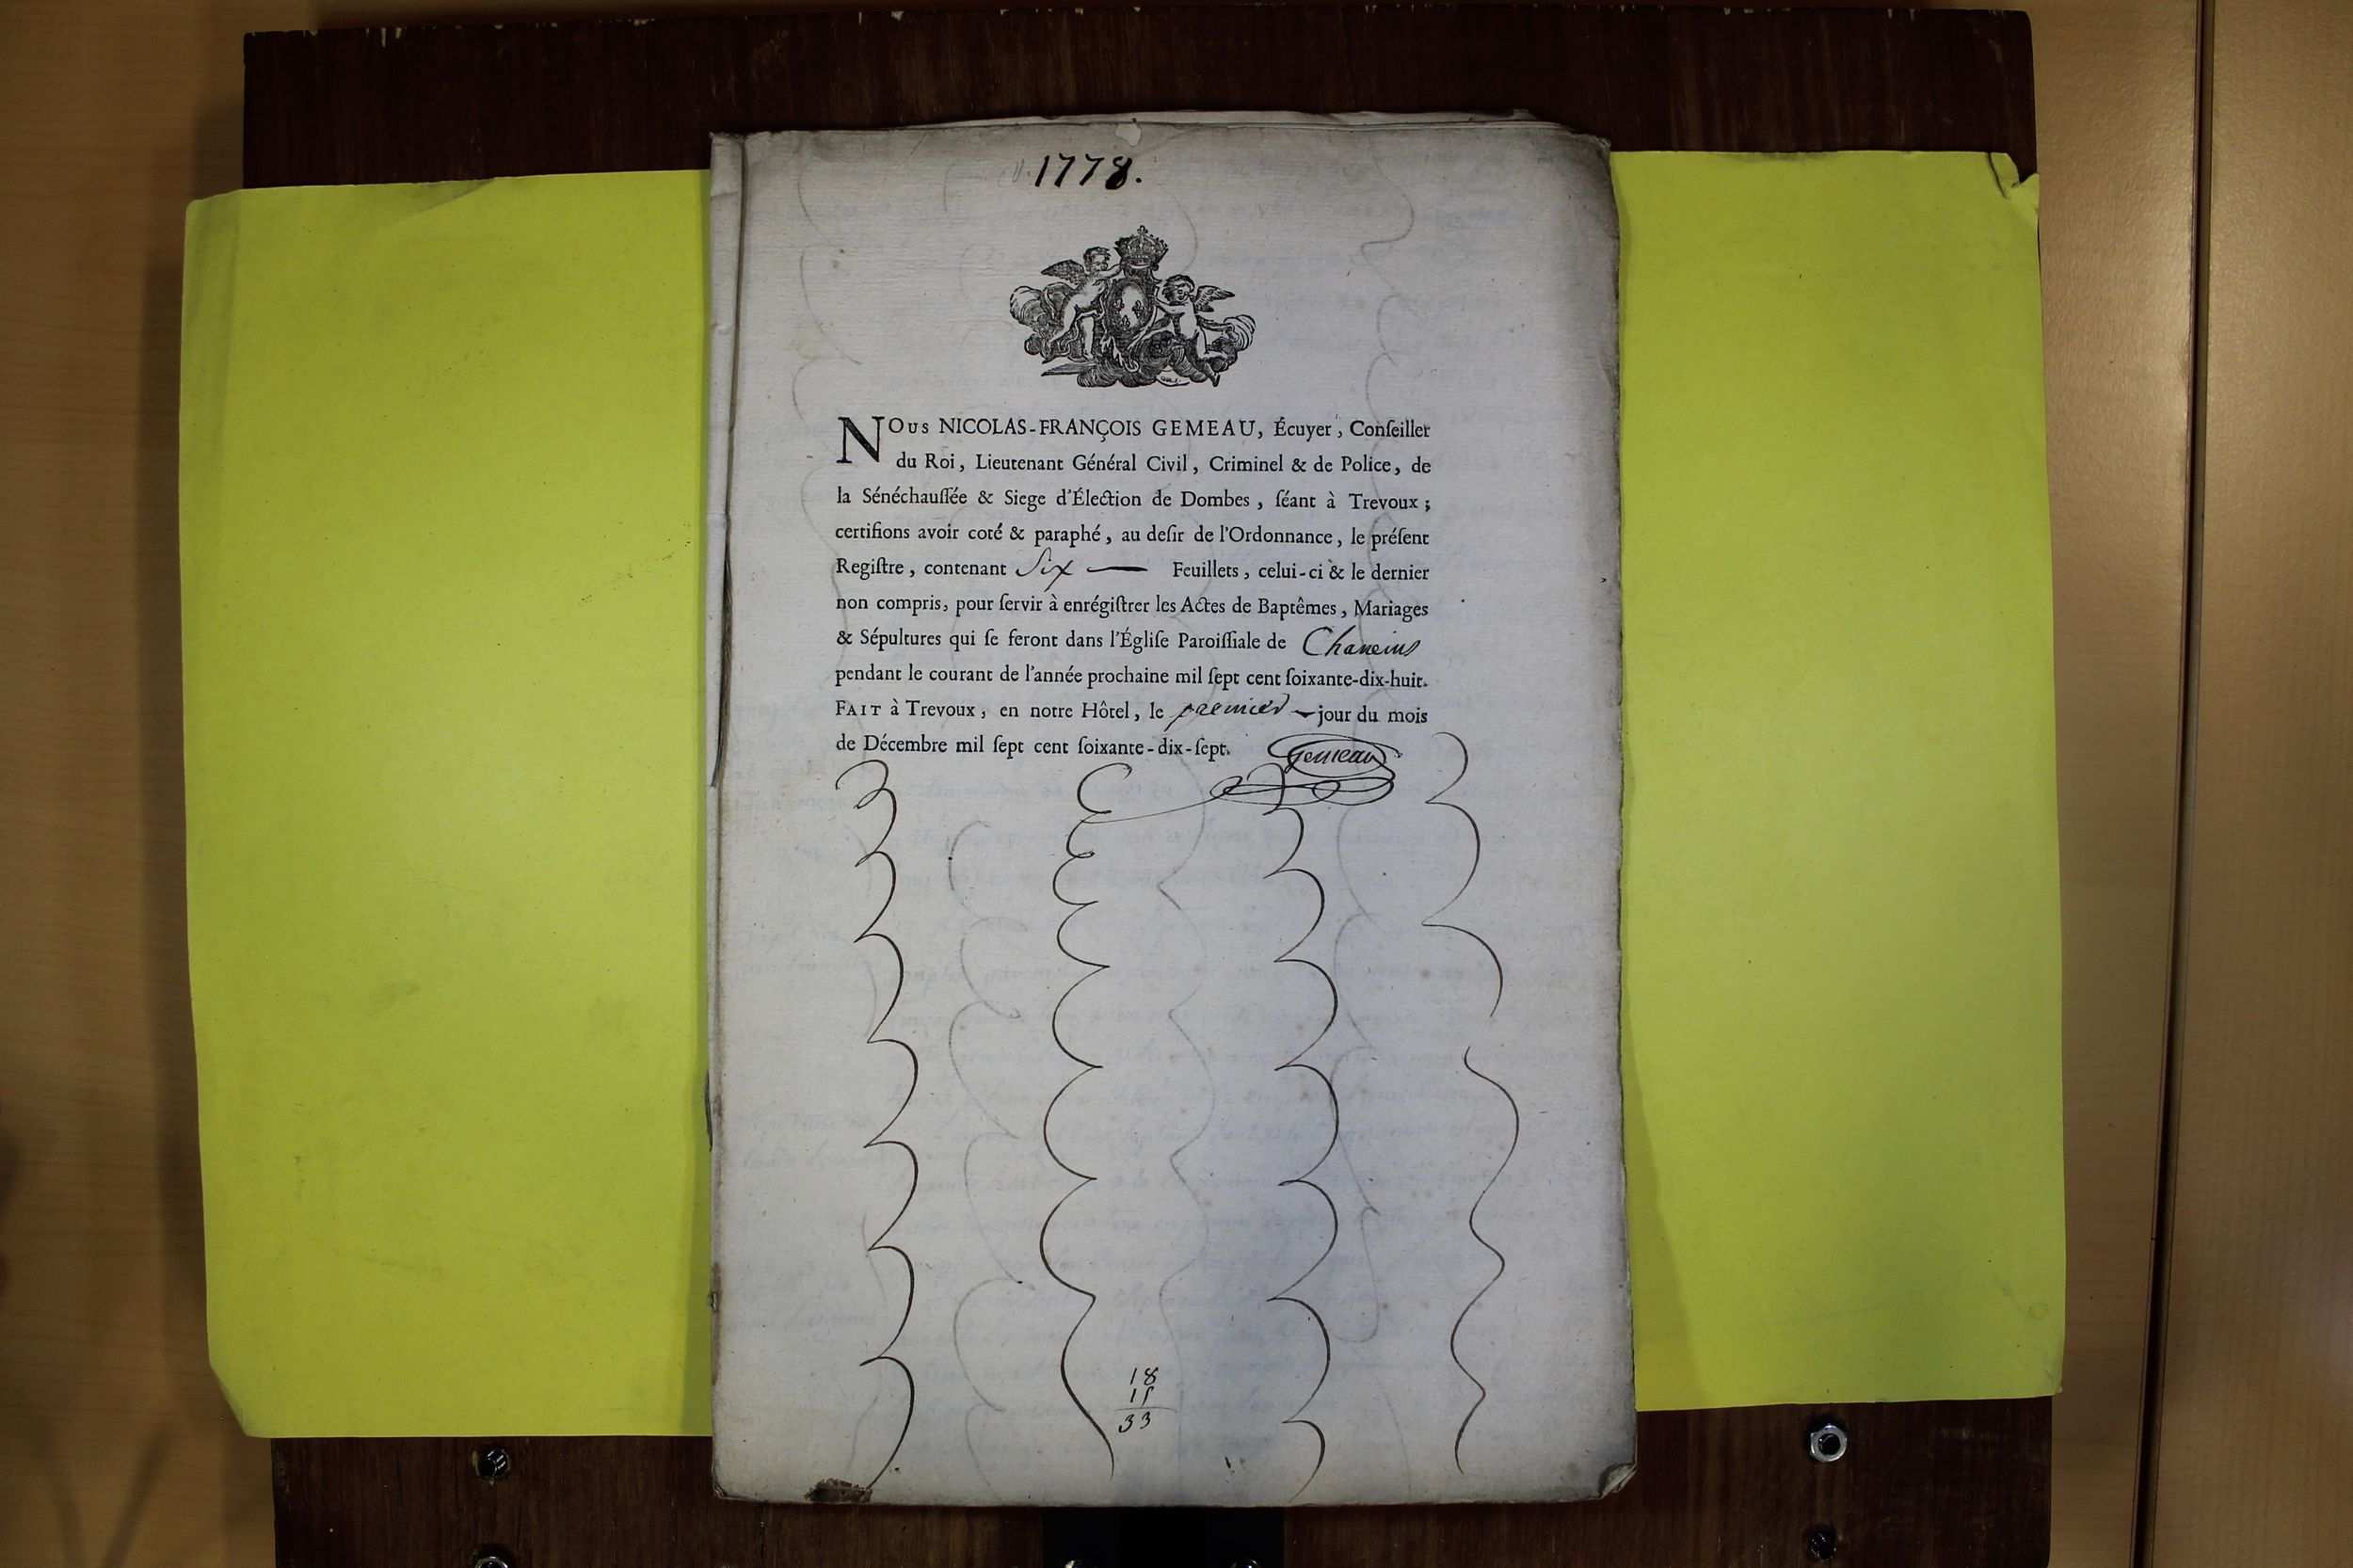 1778.
NOUS NICOLAS-FRANÇOIS GEMEAU, Écuyer, Conſeiller
du Roi, Lieutenant Général Civil, Criminel & de Police, de
la Sénéchauſſée & Siege d'Élection de Dombes, ſéant à Trevoux;
certifions avoir coté & paraphé, au deſir de l'Ordonnance, le préſent
Regiſtre, contenant Six — Feuillets, celui-ci & le dernier
non compris, pour ſervir à enrégiſtrer les Actes de Baptêmes, Mariages
& Sépultures qui ſe feront dans l'Égliſe Paroiſſiale de Chaneins
pendant le courant de l'année prochaine mil ſept cent ſoixante-dix-huit.
FAIT à Trevoux, en notre Hôtel, le premier — jour du mois
de Décembre mil ſept cent ſoixante-dix-ſept. Gemeau
18
15
33